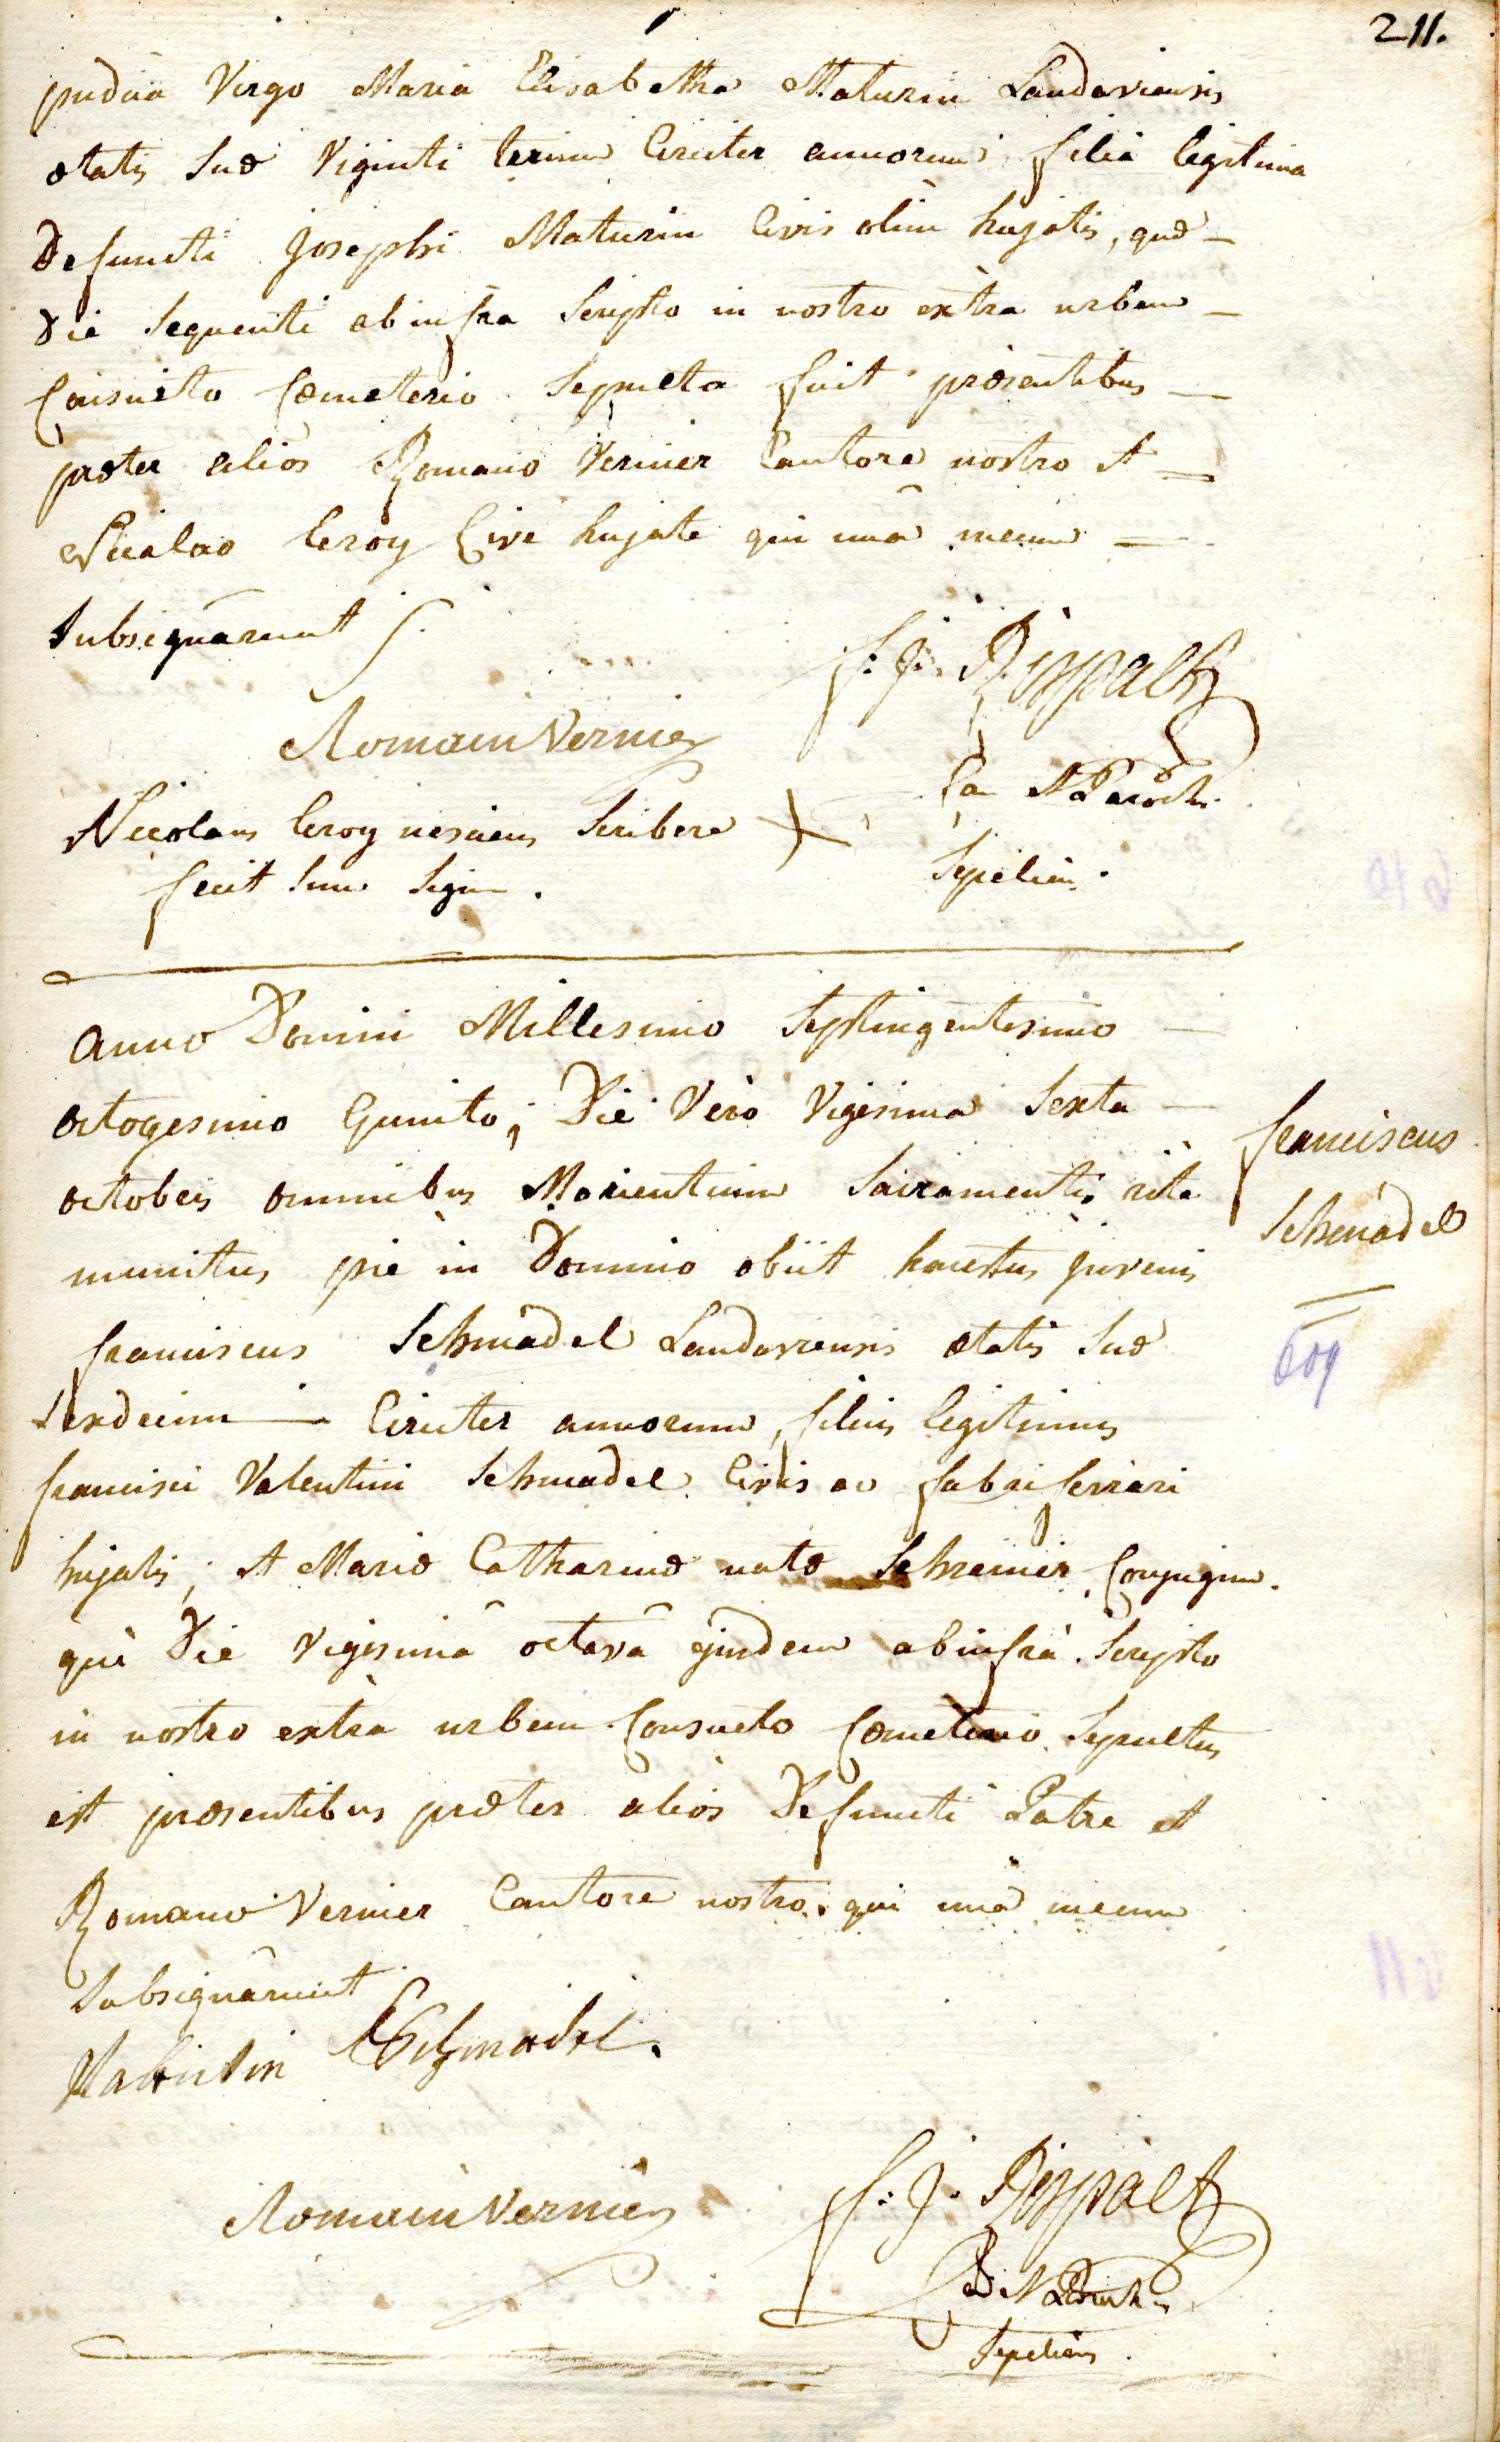 211.
pudica Virgo Maria Elisabetha Maturin Landaviensis
ætatis suæ viginti trium circiter annorum filia legitima
defuncti Josephi Maturin civis olim hujatis, quæ —
die sequenti ab infra scripto in nostro extra urbem —
consueto cœmeterio sepulta fuit præsentibus —
præter aliòs Romano Vernier cantore nostro et —
Nicolao Leroy cive hujate qui unâ mecum —
subsignârunt
f: j: Rippalt
Romain Vernier
Nicolaus Leroy nesciens scribere +
fecit suum signum.
Sepeliens.
Anno Domini Millesimo Septingentesimo —
octogesimo Quinto, Die verò vigesima sexta —
octobris omnibus Morientium Sacramentis ritè
munitus piè in Domino obiit honestus juvenis
franciscus Schmadel Landaviensis ætatis suæ
sexdecim — circiter annorum, filius legitimus
francisci Valentini Schmadel civis ac fabri ferrari
hujatis, et Mariæ Catharinæ natæ Schreiner conjugum.
qui Die vigesimâ octavâ ejusdem ab infrà scripto
in nostro extrà urbem consueto cœmeterio sepultus
est præsentibus præter aliòs Defuncti Patre et
Romano Vernier Cantore nostro, qui unà mecum
subsignârunt
franciscus
Schmadel
609
Valentin Schmadel.
Romain Vernier
f: j: Rippalt
Sepeliens.